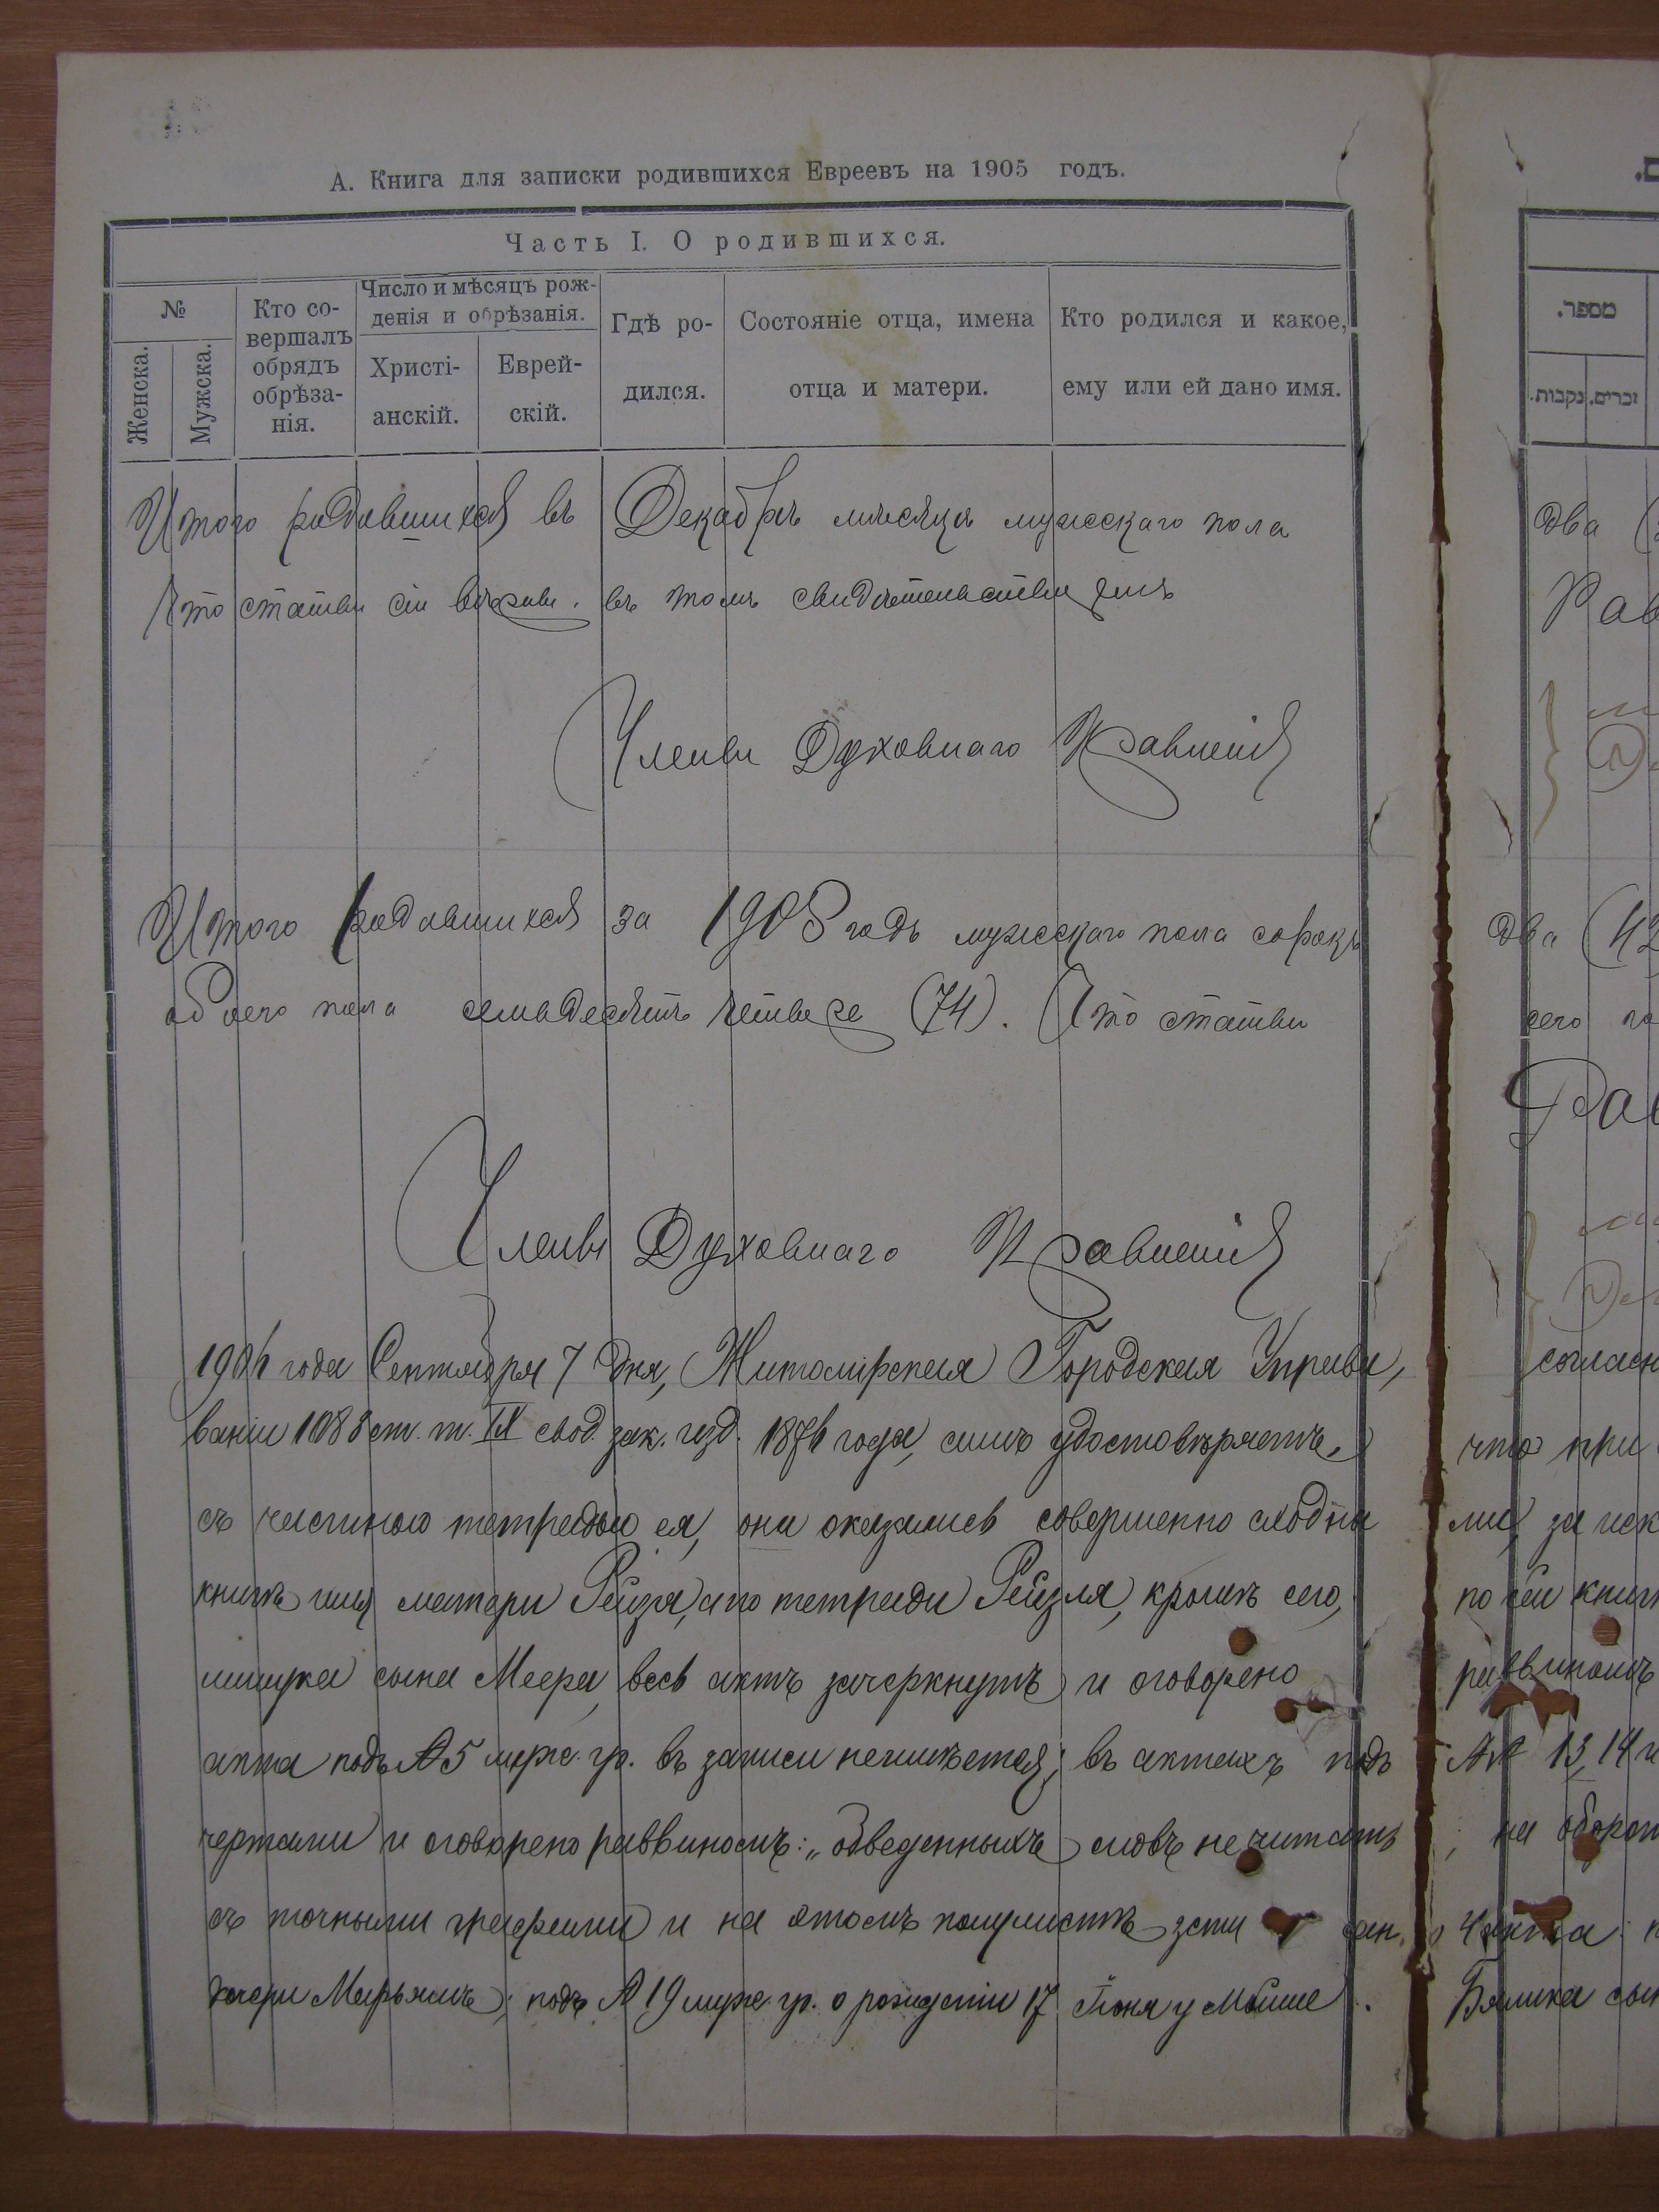 А. Книга для записки родившихся Евреевъ на 1905 годъ.
Часть I. О родившихся.
№
Женска.
Мужска.
Кто со-
вершалъ
обрядъ
обрѣза-
нія.
Число и мѣсяцъ рож-
денія и обрѣзанія.
Христі-
анскій.
Еврей-
скій.
Гдѣ ро-
дился.
Состояніе отца, имена
отца и матери.
Кто родился и какое,
ему или ей дано имя.
Итого родившихся въ Декабрѣ мѣсяцѣ мужскаго пола
Что статьи сіи вѣрны. въ томъ свидѣтельствуемъ
Члены Духовнаго Правленія
Итого родившихся за 1905 годъ мужскаго пола сорокъ
обоего пола семьдесятъ четыре (74). Что статьи
Члены Духовнаго Правленія
1906 года Сентября 7 дня, Житомірская Городская Управа,
ваніи 1088 ст. т. IX свод. зак. изд. 1876 года, симъ удостовѣряетъ,
съ частною тетрадью ея, она оказались совершенно сходны
книгѣ имя матери Рейза, а по тетради Рейзля, кромѣ сего,
сына Меера, весь актъ зачеркнутъ и оговорено
акта подъ № 5 муж. гр. въ записи неимѣется; въ актахъ подъ
чертами и оговорено раввиномъ: „обведенныхъ словъ не читать
съ точными графами и на этомъ полулистѣ
дочери Марьямъ; подъ № 19 муж. гр. о рожденіи 17 Іюня у Мойше
מספר.
זכרים.
נקבות.
два
два (42
сего
согласн
что при
за иск
по сей книг
раввиномъ
№№ 13, 14 и
на оборот
Бялика сын